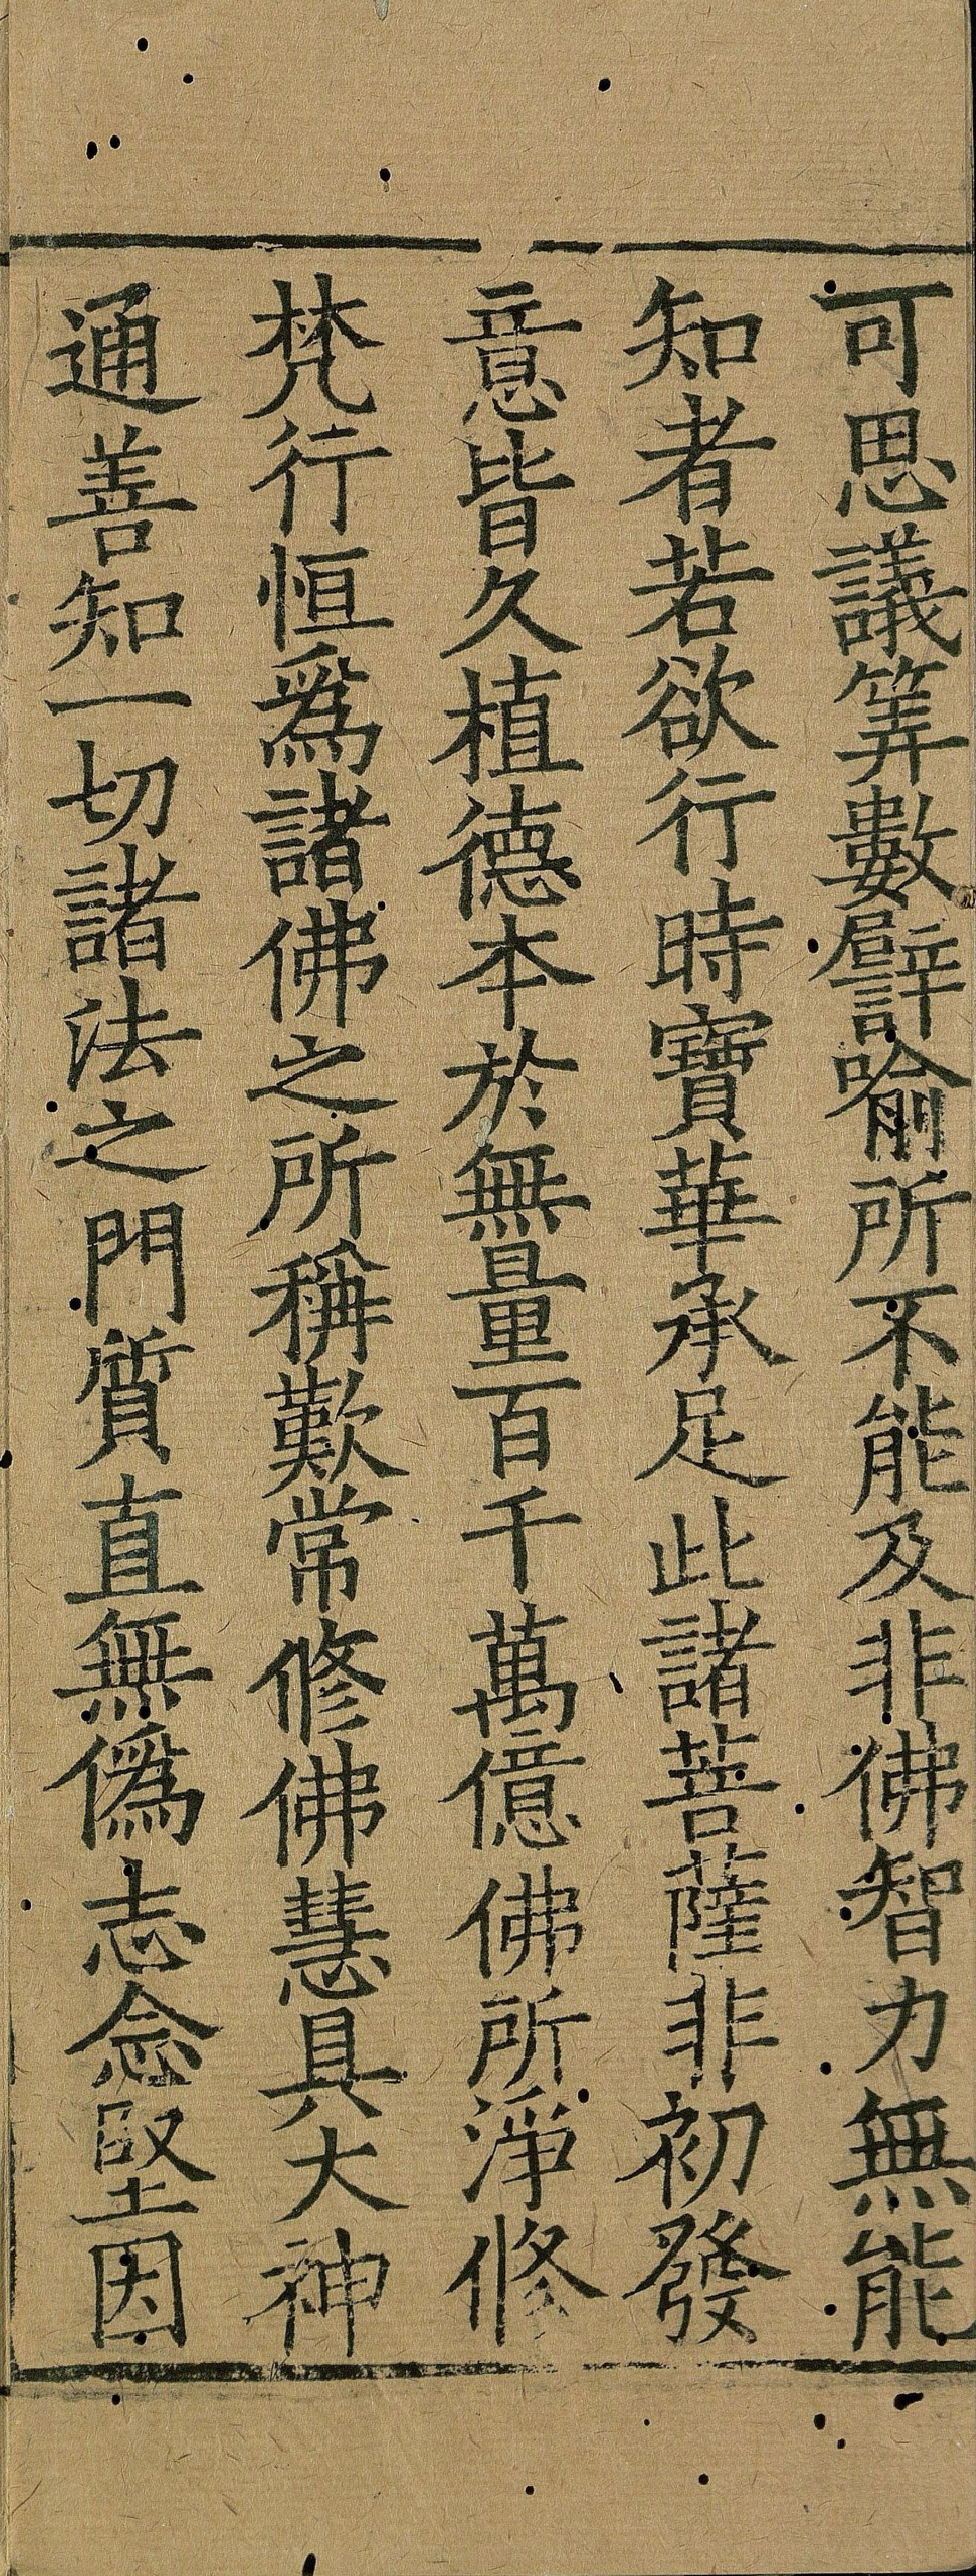 可思議筭數譬喻所不能及非佛智力無能
知者若欲行時寶華承足此諸菩薩非初發
意皆久植德本於無量百千萬億佛所淨修
梵行恒爲諸佛之所稱歎常修佛慧具大神
通善知一切諸法之門質直無僞志念堅固